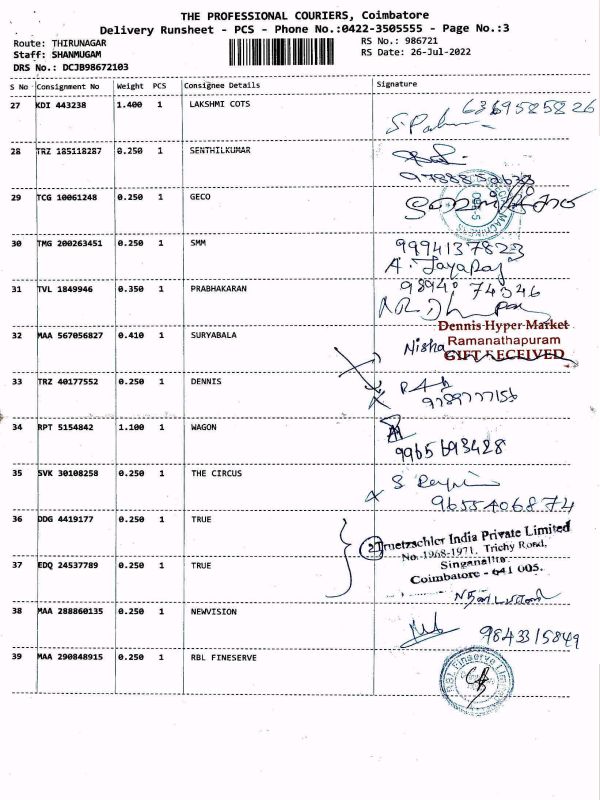 THE PROFESSIONAL COURIERS, Coimbatore
Delivery Runsheet - PCS - Phone No.:0422-3505555 - Page No.:3
Route: THIRUNAGAR
RS No.: 986721
Staff: SHANMUGAM
RS Date: 26-Jul-2022
DRS No.: DCJB98672103
S No Consignment No Weight PCS Consignee Details Signature
27 KDI 443238 1.400 1 LAKSHMI COTS
6369585826
28 TRZ 185118287 0.250 1 SENTHILKUMAR
29 TCG 10061248 0.250 1 GECO
30 TMG 200263451 0.250 1 SMM 9994137823
A. Jayaraj
31 TVL 1849946 0.350 1 PRABHAKARAN 98940 74346
Dennis Hyper Market
32 MAA 567056827 0.410 1 SURYABALA Nisha Ramanathapuram
GIFT RECEIVED
33 TRZ 40177552 0.250 1 DENNIS
9789777156
34 RPT 5154842 1.100 1 WAGON
9965693428
35 SVK 30108258 0.250 1 THE CIRCUS
9655406874
36 DDG 4419177 0.250 1 TRUE
2 Truetzschler India Private Limited
No. 1968-1971, Trichy Road,
37 EDQ 24537789 0.250 1 TRUE Singanallur
Coimbatore - 641 005.
38 MAA 288860135 0.250 1 NEWVISION
9843315849
39 MAA 290848915 0.250 1 RBL FINESERVE
RBL Finserve Limited